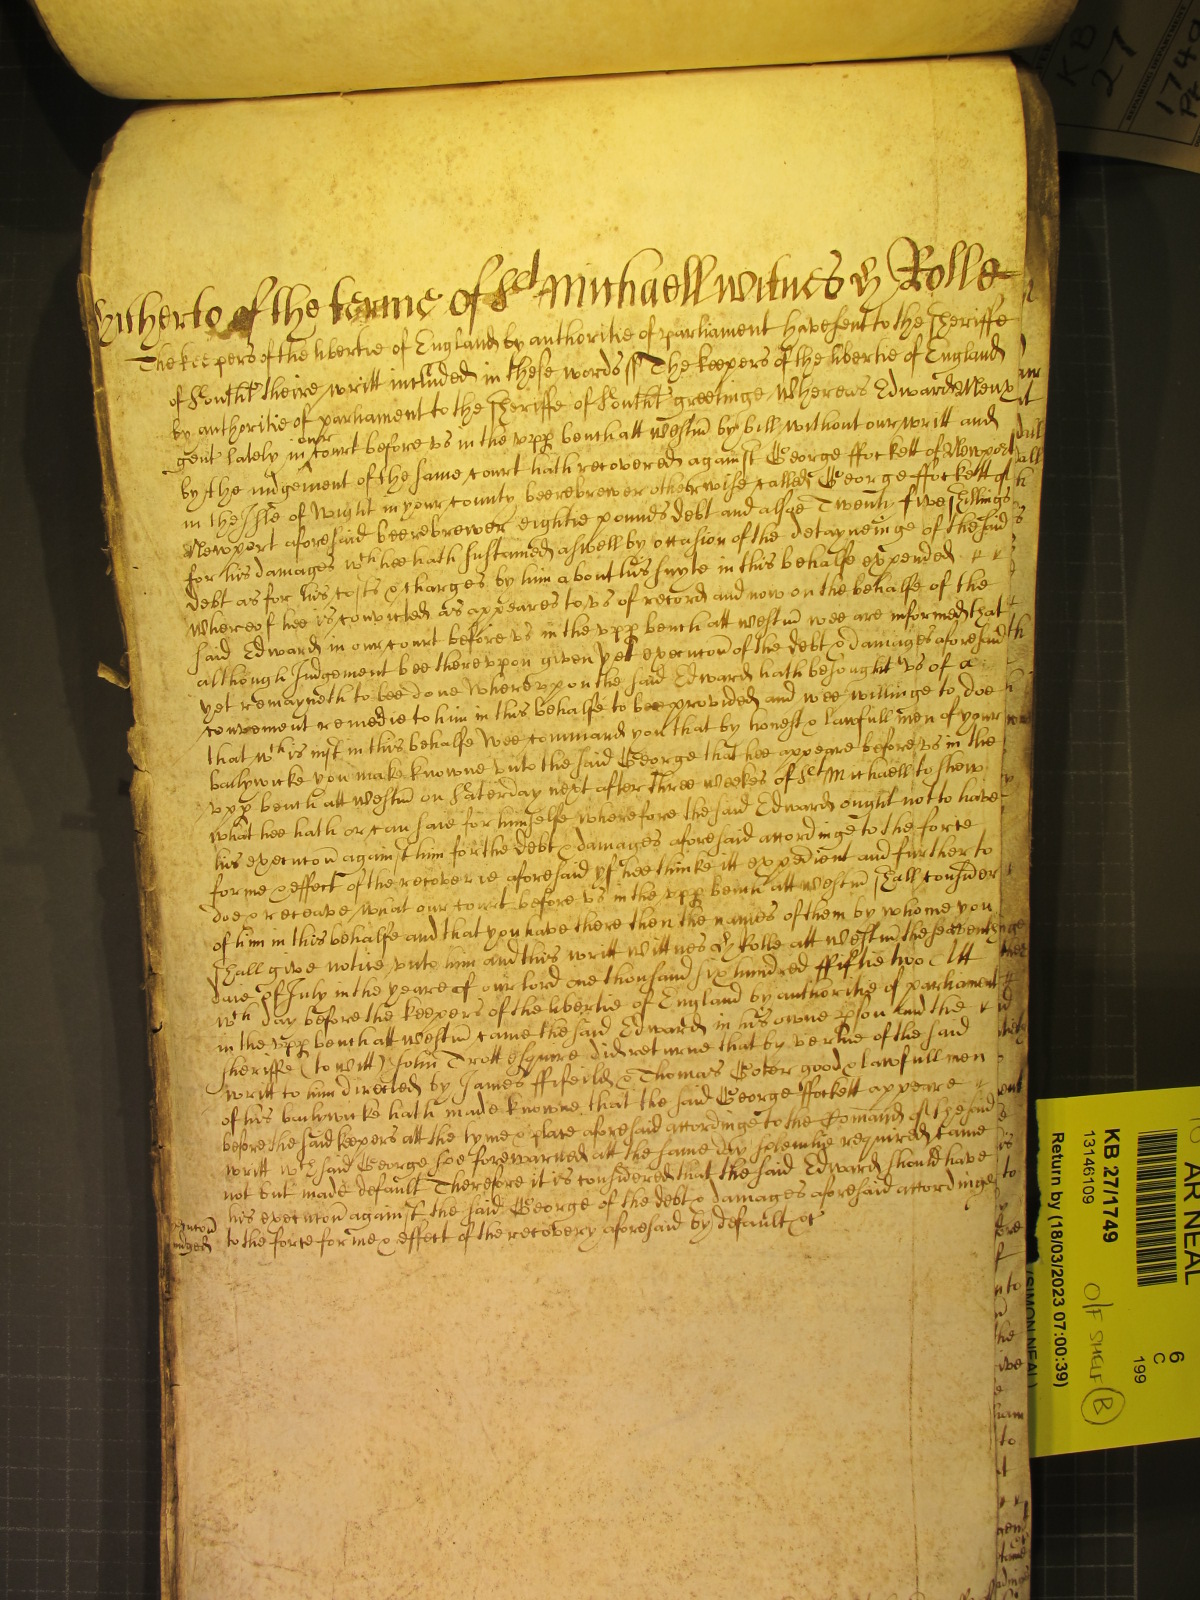 hitherto of the terme of Sct Michaell witnes H Rolle
The keepers of the libertie of England by authoritie of parliament have sent to the Sheriffe
of Southt theire writt included in these words ss The keepers of the libertie of England
by authoritie of parliament to the Sheriffe of Southt greetinge Whereas Edwarde
gent lately in our Court before us in the upp bench att Westm by bill without our writt and
by the iudgement of the same Court hath recovered against George ffockett of Newport
in the Isle of Wight in your County beerebrewer otherwise called George ffockett of
Newport aforesaid beerebrewer eightie pounds debt and alsoe Twenty five Shillings
for his damages wch hee hath sustained aswell by occasion of the detayneinge of the said
debt as for his costs & charges by him about his suyte in this behalfe expended
Whereof hee is convicted as appeares to us of record and now on the behalfe of the
said Edward in our Court before us in the upp bench att Westm wee are informed that
although Judgement bee thereupon given yett execucon of the debt & damages aforesaid
yet remayneth to bee done Whereupon the said Edward hath besought us of a
convenient remedie to him in this behalfe to bee provided and wee willinge to doe
that wch is iust in this behalfe Wee command you that by honest & lawfull men of your
bailywicke you make knowne unto the said George that hee appeare before us in the
upp bench att Westm on Saterday next after Three weekes of Sct Michaell to shew
what hee hath or can saie for himselfe wherefore the said Edward ought not to have
his execucon against him for the debt & damages aforesaid accordinge to the force
forme & effect of the recoverie aforesaid yf hee thinke itt expedient and further to
doe & receave what our Court before us in the upp bench att Westm shall consider
of him in this behalfe and that you have there then the names of them by whome you
shall give notice unto him and this writt Wittnes H Rolle att Westm the seaventh
daie of July in the yeare of our lord one thousand six hundred ffiftie two Att
wch day before the keepers of the libertie of England by authoritie of parliament
in the upp bench att Westm came the said Edward in his owne pson And the
Sheriffe (to witt) John Trott Esquire did returne that by vertue of the said
writt to him directed by James ffifeild & Thomas Goter good & lawfull men
of his bailywicke hath made knowne that the said George ffockett appeare
before the said keepers att the tyme & place aforesaid accordinge to the Comand of the said
writt wch said George soe forewarned att the same day solemnlie required came
not but made default Therefore it is considered that the said Edward should have
his execucon against the said George of the debt & damages aforesaid accordinge
to the force forme & effect of the recovery aforesaid by default &c
KB
27
1749
AR NEAL
6
C
199
KB 27/1749
13146109
O/F SHELF B
Return by (18/03/2023 07:00:39)
(SIMON NEAL)